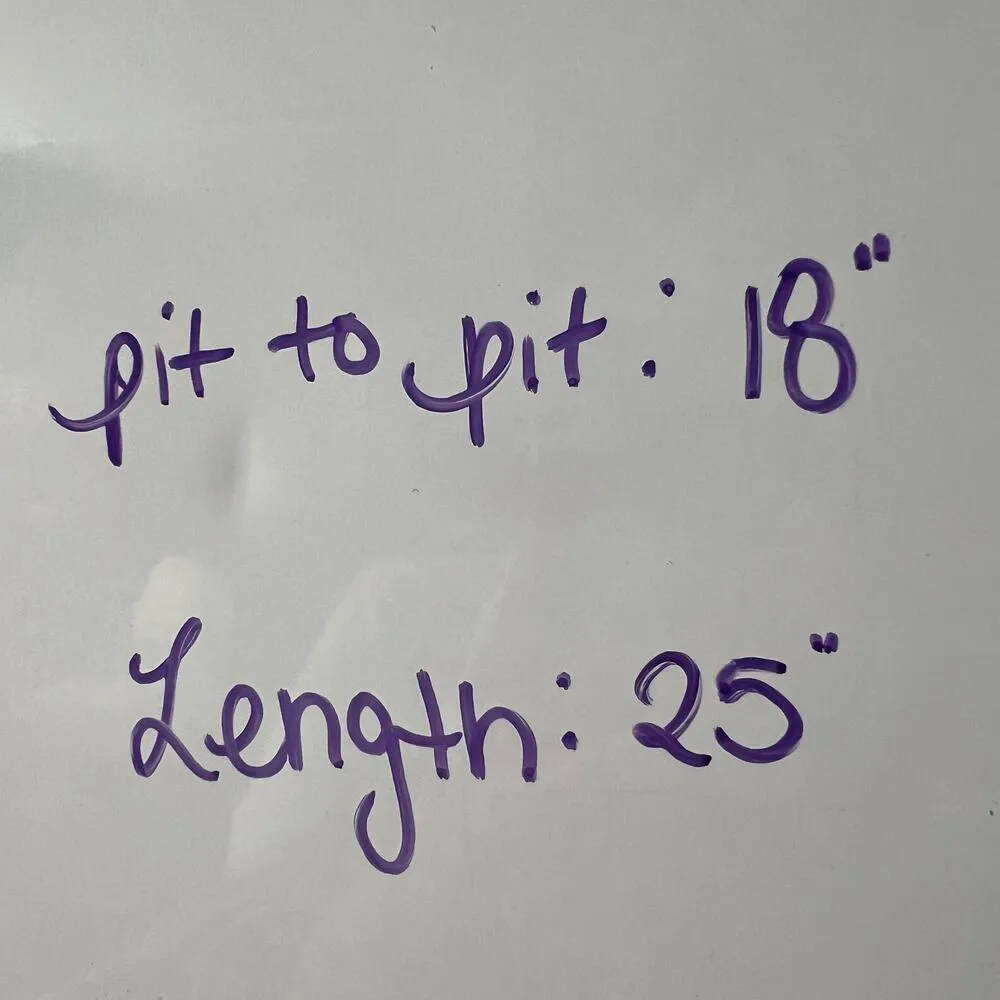 pit to pit: 18"
Length: 25"